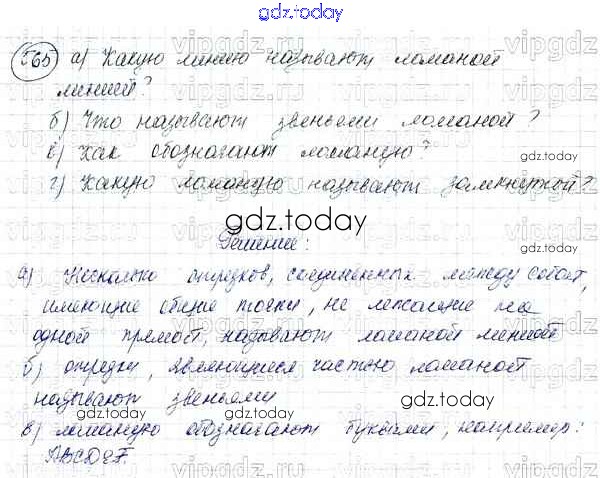 gdz.today
565 а) Какую линию называют ломаной
линией?
б) Что называют звеньями ломаной?
в) Как обозначают ломаную?
gdz.today
г) Какую ломаную называют замкнутой?
gdz.today
Решение:
а) Несколько отрезков, соединенных между собой,
имеющие общие точки, не лежащие на
одной прямой, называют ломаной линией
б) отрезки, являющиеся частью ломаной
называют звеньями
gdz.today
gdz.today
в) ломаную обозначают буквами, например:
ABCDEF.